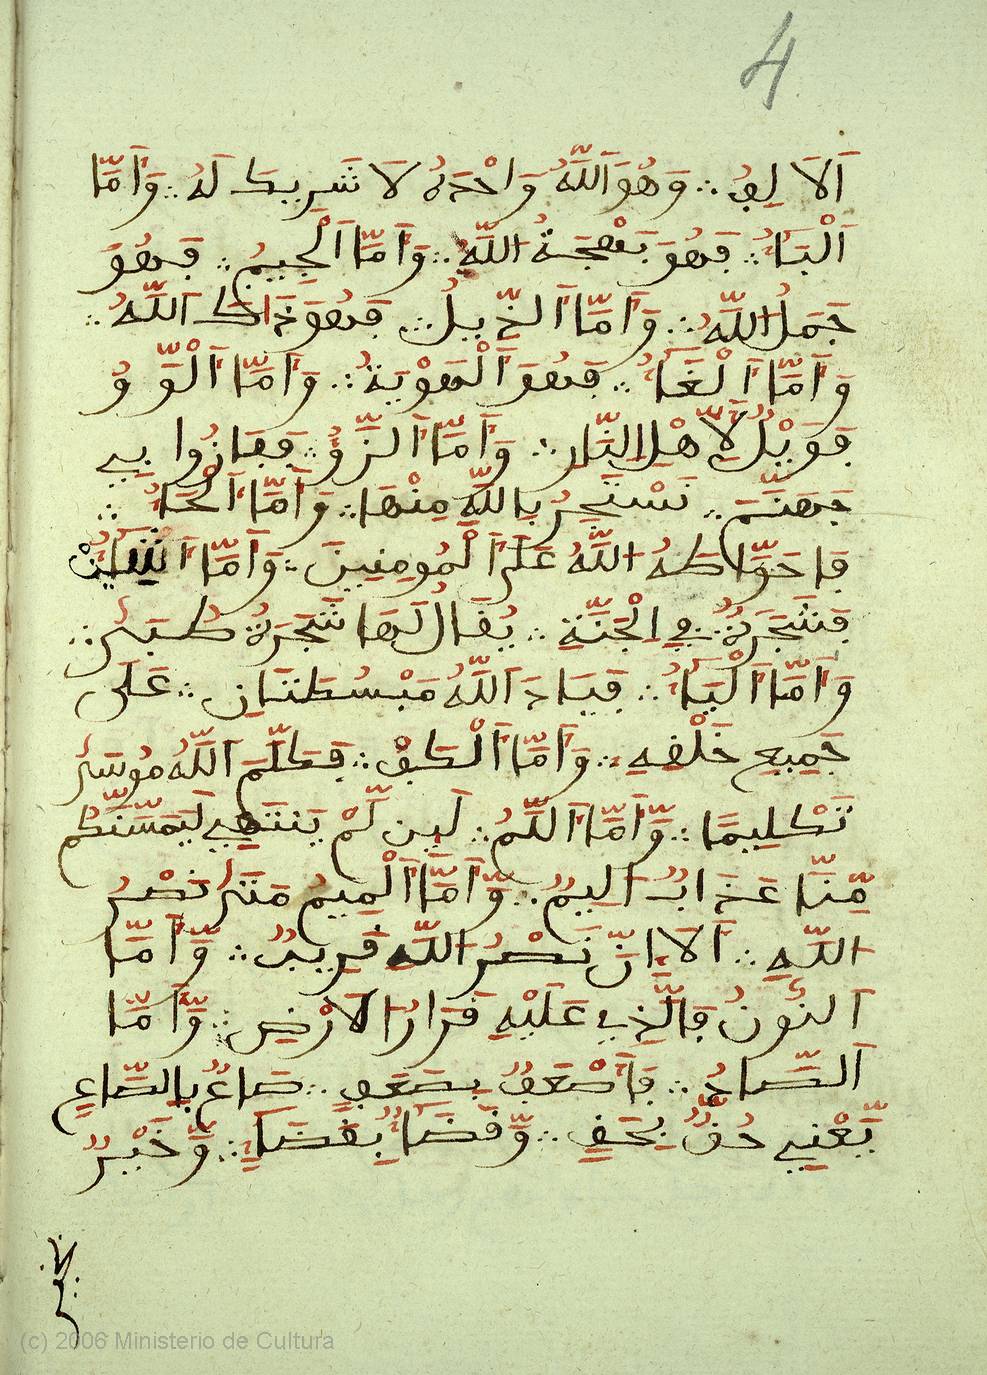 4
اَلاَلِڢُ ؞ وَهُوَ اَللَّهُ وَاحْدَهُ لَا شَرِيكَ لَهُ ؞ وَأَمَّا
اَلْبَاءُ ؞ ڢَهُوَ بَهْجَةُ اللَّهِ ؞ وَأَمَّا اَلْجِيمُ ؞ ڢَهُوَ
جَمَلُ اللَّهِ ؞ وَأَمَّا اَلذِّيلُ ؞ ڢَهُوَ ذَاكَ اَللَّهُ ؞
وَأَمَّا اَلْهَاءُ ؞ ڢَهُوَ اَلْهَوْيَةُ ؞ وَأَمَّا اَلْوَوُ
ڢَوَيْلٌ لِّأَهْلِ النَّارِ ؞ وَأَمَّا اَلزَّيُ ؞ ڢَڢَازُوا بِي
جَهَنَّمَ ؞ نَسْتَجِيرُ بِاللَّهِ مِنْهَا ؞ وَأَمَّا اَلْحَاءُ ؞
ڢَاحَوَّاطَهُ اللَّهُ عَلَى اَلْمُومِنِينَ ؞ وَأَمَّا
ڢَشَجَرَةٌ ڢِي اِلْجَنَّةِ ؞ يُڧَالُ لَهَا شَجَرَةُ طُبَىٰ ؞
وَأَمَّا اَلْيَاءُ ؞ ڢَيَادَ اَللَّهُ مَبْسُطَتَانِ ؞ عَلَى
جَمِيعِ خَلْڧِهِ ؞ وَأَمَّا اَلْكَڢْ ؞ ڢَكَلَّمَ اَللَّهُ مُوسَىٰ
تَكْلِيمًا ؞ وَّأَمَّا اَللَّمُ ؞ لَيِن لَّمْ يَنتَهِي لَيَمَسَّنَّكُم
مِّنَّا عَذَابٌ اَلِيمٌ ؞ وَّأَمَّا اَلْمِيمُ مَتَىٰ نَصْرُ
اللَّهِ ؞ اَلَا إِنَّ نَصْرُ اللَّهِ ڧَرِيبٌ ؞ وَّأَمَّا
اَلنُّونُ ڢَالَّذِي عَلَيْهِ ڧَرَارُ الَارْضِ ؞ وَّأَمَّا
اَلصَّادُ ؞ ڢَأَصْعَڢٌ بِصَعَڢٍ ؞ صَاعٌ بِالصَّاعِ
يَّعْنِي حُڧٌّ بِحَڧٍ ؞ وَّڧَضَاءٌ بِڧَضَاءٍ ؞ وَّخَيْرٌ
بخير
(c) 2006 Ministerio de Cultura